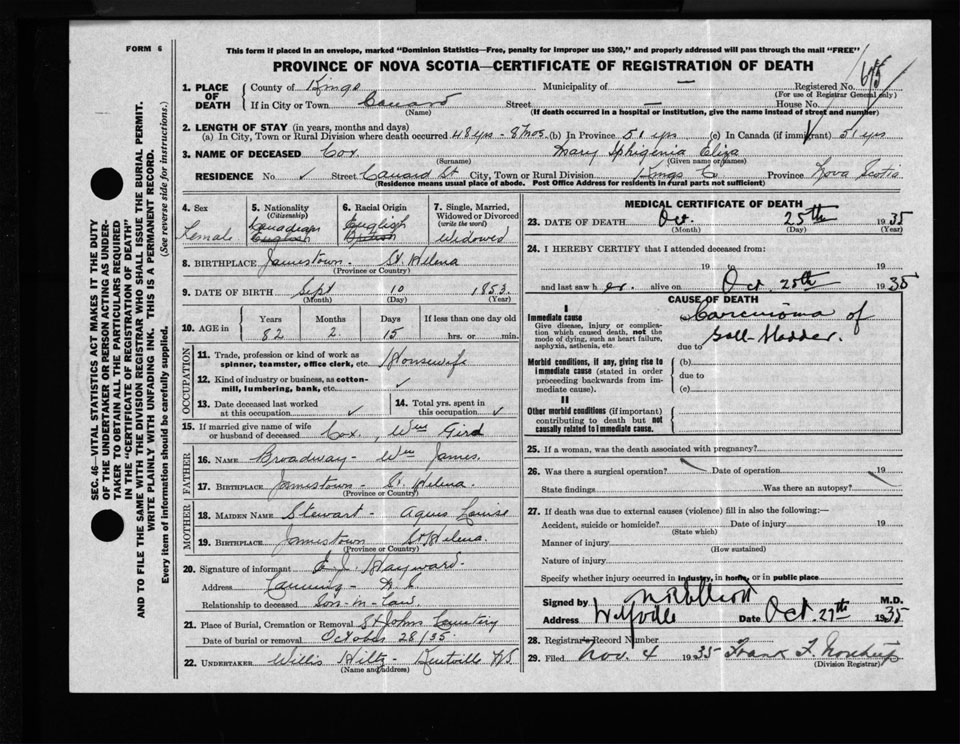 FORM 6
This form if placed in an envelope, marked "Dominion Statistics—Free, penalty for improper use $300," and properly addressed will pass through the mail "FREE"
PROVINCE OF NOVA SCOTIA—CERTIFICATE OF REGISTRATION OF DEATH
1. PLACE OF DEATH County of Kings Municipality of — Registered No. 675
(For use of Registrar General only)
If in City or Town Canard Street — House No.
(Name) (If death occurred in a hospital or institution, give the name instead of street and number)
2. LENGTH OF STAY (in years, months and days)
(a) In City, Town or Rural Division where death occurred 48 yrs - 8 mos. (b) In Province 51 yrs (c) In Canada (if immigrant) 51 yrs
3. NAME OF DECEASED Cox. Mary Iphigenia Eliza
(Surname) (Given name or names)
RESIDENCE No. ✓ Street Canard St. City, Town or Rural Division Kings Co. Province Nova Scotia
(Residence means usual place of abode. Post Office Address for residents in rural parts not sufficient)
4. Sex Female
5. Nationality (Citizenship) Canadian English
6. Racial Origin English British
7. Single, Married, Widowed or Divorced (write the word) Widowed
8. BIRTHPLACE Jamestown - St. Helena
(Province or Country)
9. DATE OF BIRTH Sept 10 1853
(Month) (Day) (Year)
10. AGE in Years 82 Months 2 Days 15 If less than one day old hrs. or min.
OCCUPATION
11. Trade, profession or kind of work as spinner, teamster, office clerk, etc. Housewife
12. Kind of industry or business, as cotton-mill, lumbering, bank, etc. ✓
13. Date deceased last worked at this occupation ✓
14. Total yrs. spent in this occupation ✓
15. If married give name of wife or husband of deceased Cox, Wm Gird
FATHER
16. NAME Broadway - Wm James.
17. BIRTHPLACE Jamestown - St. Helena.
(Province or Country)
MOTHER
18. MAIDEN NAME Stewart - Agnes Louise
19. BIRTHPLACE Jamestown St Helena.
(Province or Country)
20. Signature of informant E J. Hayward
Address Canning - N.S.
Relationship to deceased Son-in-law.
21. Place of Burial, Cremation or Removal St Johns Cemetery
Date of burial or removal October 28/35
22. UNDERTAKER Willis Hiltz - Kentville NS
(Name and address)
MEDICAL CERTIFICATE OF DEATH
23. DATE OF DEATH Oct. 25th 1935
(Month) (Day) (Year)
24. I HEREBY CERTIFY that I attended deceased from:
19 to 19
and last saw her alive on Oct. 25th 1935
CAUSE OF DEATH
I
Immediate cause Carcinoma of
Give disease, injury or complication which caused death, not the mode of dying, such as heart failure, asphyxia, asthenia, etc. gall-bladder.
due to
Morbid conditions, if any, giving rise to immediate cause (stated in order proceeding backwards from immediate cause).
(b)
due to
(c)
II
Other morbid conditions (if important) contributing to death but not causally related to immediate cause.
25. If a woman, was the death associated with pregnancy?
26. Was there a surgical operation? Date of operation 19
State findings Was there an autopsy?
27. If death was due to external causes (violence) fill in also the following:—
Accident, suicide or homicide? Date of injury 19
(State which)
Manner of injury
(How sustained)
Nature of injury
Specify whether injury occurred in industry, in home, or in public place
Signed by M.D.
Address Wolfville Date Oct 27th 1935
28. Registrar's Record Number
29. Filed Nov. 4 1935 Frank F. Northup
(Division Registrar)
SEC. 46—VITAL STATISTICS ACT MAKES IT THE DUTY
OF THE UNDERTAKER OR PERSON ACTING AS UNDER-
TAKER TO OBTAIN ALL THE PARTICULARS REQUIRED
IN THE "CERTIFICATE OF REGISTRATION OF DEATH"
AND TO FILE THE SAME WITH THE DIVISION REGISTRAR WHO SHALL ISSUE THE BURIAL PERMIT.
WRITE PLAINLY WITH UNFADING INK. THIS IS A PERMANENT RECORD.
Every item of information should be carefully supplied. (See reverse side for instructions.)